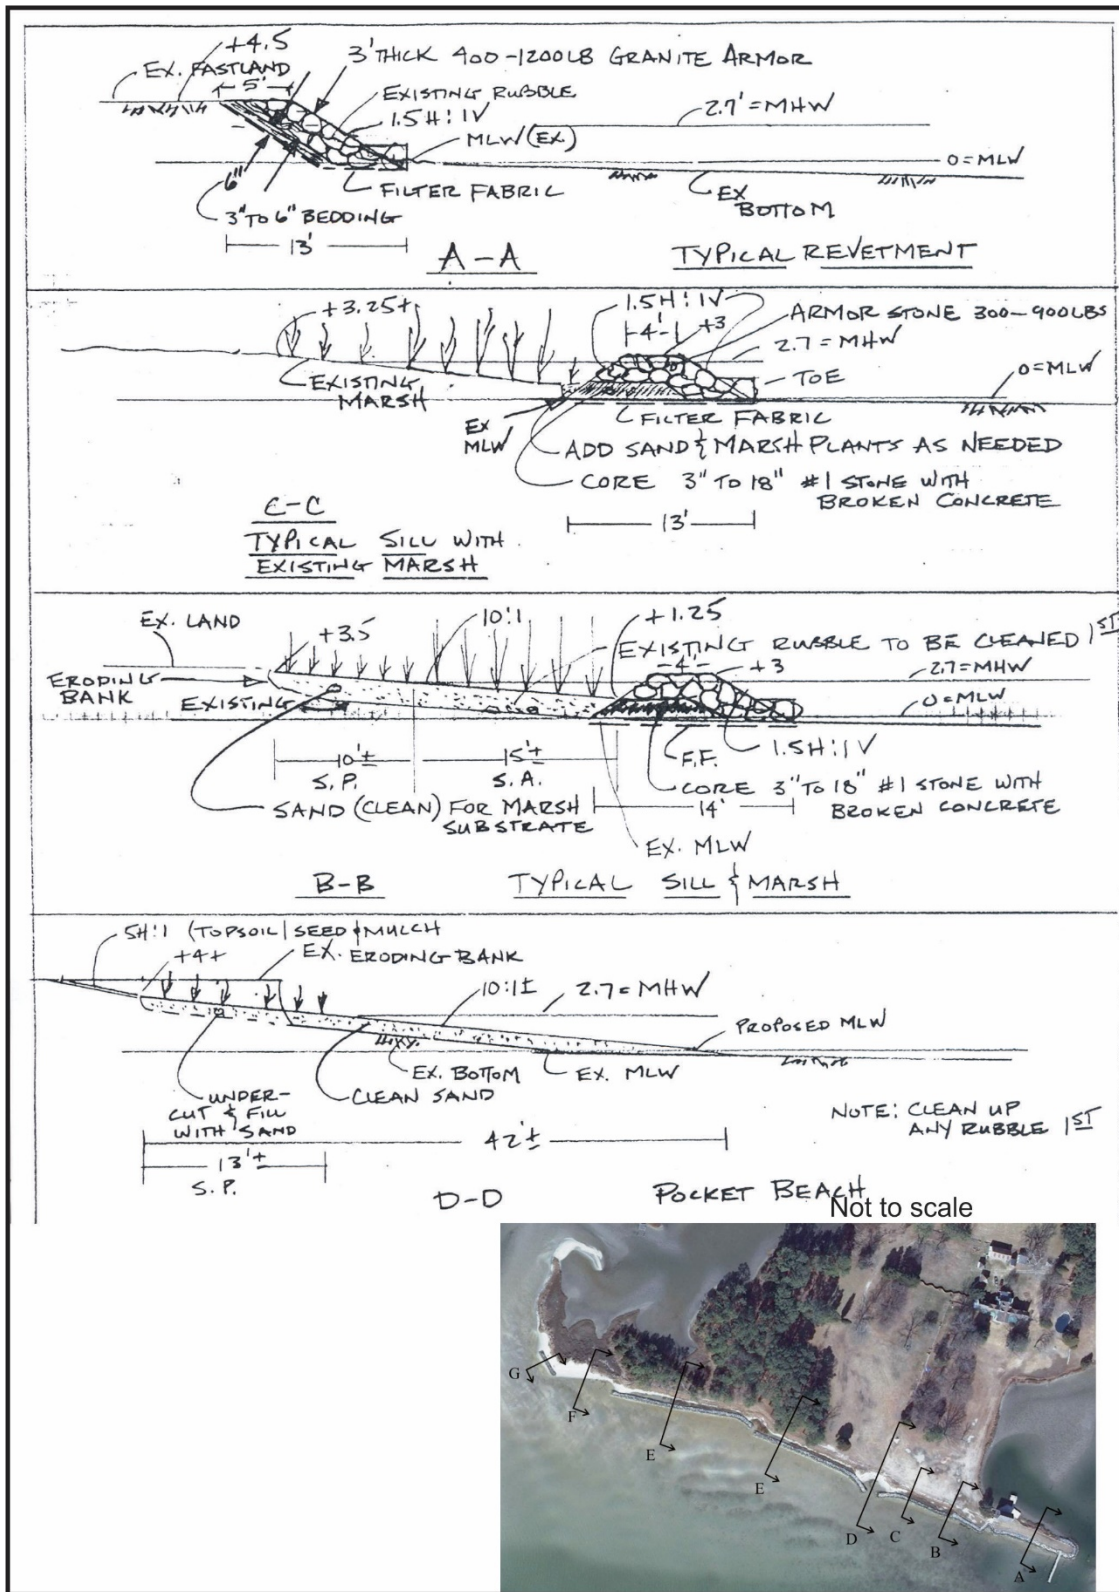 +4.5
EX. FASTLAND
5'
3' THICK 400-1200LB GRANITE ARMOR
EXISTING RUBBLE
1.5H:1V
2.7' = MHW
MLW (EX.)
0 = MLW
6"
FILTER FABRIC
EX
BOTTOM
3" TO 6" BEDDING
13'
A-A
TYPICAL REVETMENT
+3.25±
1.5H:1V
4'
+3
ARMOR STONE 300-900LBS
2.7 = MHW
TOE
0 = MLW
EXISTING
MARSH
EX
MLW
FILTER FABRIC
ADD SAND & MARSH PLANTS AS NEEDED
CORE 3" TO 18" #1 STONE WITH
BROKEN CONCRETE
13'
C-C
TYPICAL SILL WITH
EXISTING MARSH
EX. LAND
+3.5
10:1
+1.25
EXISTING RUBBLE TO BE CLEANED 1ST
4'
+3
2.7 = MHW
ERODING
BANK
EXISTING
0 = MLW
10'±
S.P.
15'±
S.A.
F.F.
1.5H:1V
SAND (CLEAN) FOR MARSH
SUBSTRATE
CORE 3" TO 18" #1 STONE WITH
BROKEN CONCRETE
14'
EX. MLW
B-B
TYPICAL SILL & MARSH
5H:1 (TOPSOIL/SEED & MULCH
+4±
EX. ERODING BANK
10:1±
2.7 = MHW
PROPOSED MLW
EX. BOTTOM
EX. MLW
UNDER-
CUT & FILL
WITH SAND
CLEAN SAND
NOTE: CLEAN UP
ANY RUBBLE 1ST
42'±
13'±
S.P.
D-D
POCKET BEACH
Not to scale
G
F
E
E
D
C
B
A